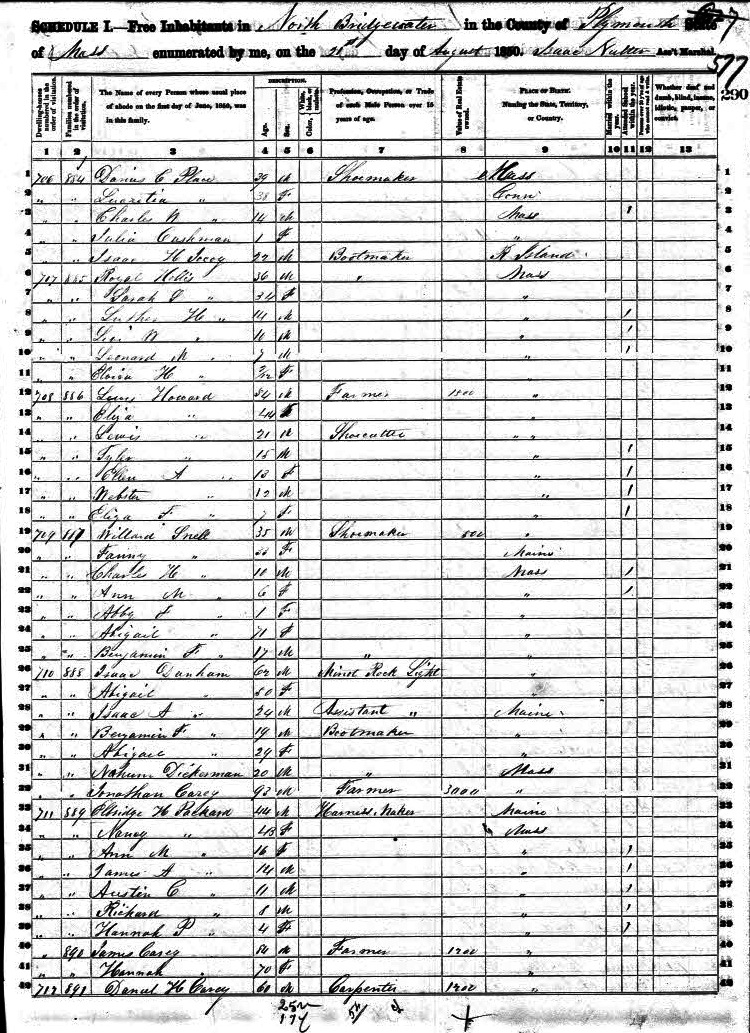 SCHEDULE I.—Free Inhabitants in North Bridgewater in the County of Plymouth State
of Mass enumerated by me, on the 28th day of August 1850. Isaac Nutter Ass't Marshal.
577
290
DESCRIPTION.
Dwelling-houses numbered in the order of visitation. Families numbered in the order of visitation. The Name of every Person whose usual place of abode on the first day of June, 1850, was in this family. Age. Sex. Color, Profession, Occupation, or Trade of each Male Person over 15 years of age. Value of Real Estate owned. PLACE OF BIRTH. Naming the State, Territory, or Country. Married within the year. Attended School within the year. Whether deaf and dumb, blind, insane, idiotic, pauper, or convict.
1 2 3 4 5 6 7 8 9 10 11 12 13
1 706 884 Darius C Place 39 M Shoemaker Mass 1
2 " " Lucretia " 38 F Conn 2
3 " " Charles W " 14 M Mass 1 3
4 " " Julia Cushman 1 F " 4
5 " " Isaac H 22 M Bootmaker R Island 5
6 707 885 Hollis 36 M " Mass 6
7 " " Sarah " 34 F " 7
8 " " Luther H " 14 M " 1 8
9 " " Levi W " 10 M " 1 9
10 " " Leonard M " 7 M " 1 10
11 " " H " F " 11
12 708 886 Howard 54 M Farmer 1500 " 12
13 " " Eliza " 44 F " 13
14 " " Lewis " 21 M Shoecutter " " 14
15 " " Tyler " 15 M " 1 15
16 " " Ellen A " 13 F " 1 16
17 " " Webster " 12 M " 1 17
18 " " Eliza F " 7 F " 1 18
19 709 887 Willard Snell 35 M Shoemaker 500 " 19
20 " " Fanny " F Maine 20
21 " " Charles H " 10 M Mass 1 21
22 " " Ann M " 6 F " 1 22
23 " " Abby F " 1 F " 23
24 " " Abigail " 71 F " 24
25 " " Benjamin F " 17 M " " 25
26 710 888 Isaac Dunham 62 M Minot Rock Light " 26
27 " " Abigail " 50 F " 27
28 " " Isaac A " 24 M Assistant " Maine 28
29 " " Benjamin F " 19 M Bootmaker " 29
30 " " Abigail " 29 F " 30
31 " " Nahum Dickerman 20 M " Mass 31
32 " " Jonathan Carey 93 M Farmer 3000 " 32
33 711 889 Elbridge H Packard 44 M Harness Maker Maine 33
34 " " Nancy " 43 F Mass 34
35 " " Ann M " 16 F " 1 35
36 " " James A " 14 M " 1 36
37 " " Austin C " 11 M " 1 37
38 " " Richard " 8 M " 1 38
39 " " Hannah P " 4 F " 1 39
40 " 890 James Carey 84 M Farmer 1200 " 40
41 " " Hannah " 70 F " 41
42 712 891 Daniel H Carey 60 M Carpenter 1200 " 42